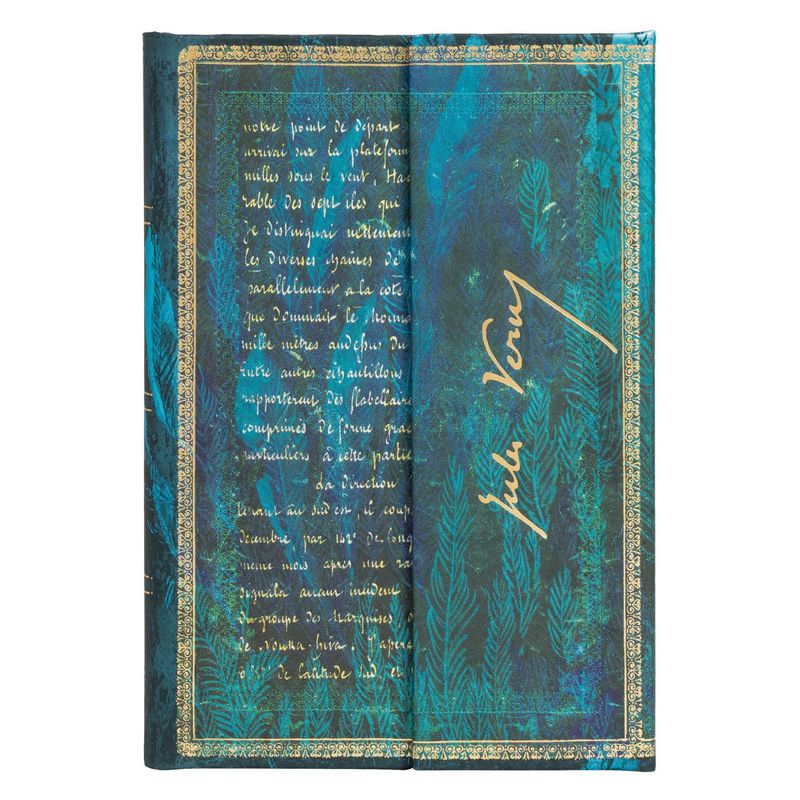 notre point de départ
arrivai sur la plateform
milles sous le vent, Ha
rable des sept iles qui
Je distinguai nettement
les diverses chaines de
parallelement a la cote
que dominait le
mille mètres audessus du
Entre autres échantillons
rapporterent des flabellaire
comprimés de forme grac
particuliers à cette partie
da direction
tenant au sud est, il coup
decembre par 142° de long
meme mois après une ra
signala aucun incident
du groupe des Marquises,
de Nouka-hiva. J'aperç
de latitude sud, et
Jules Verne